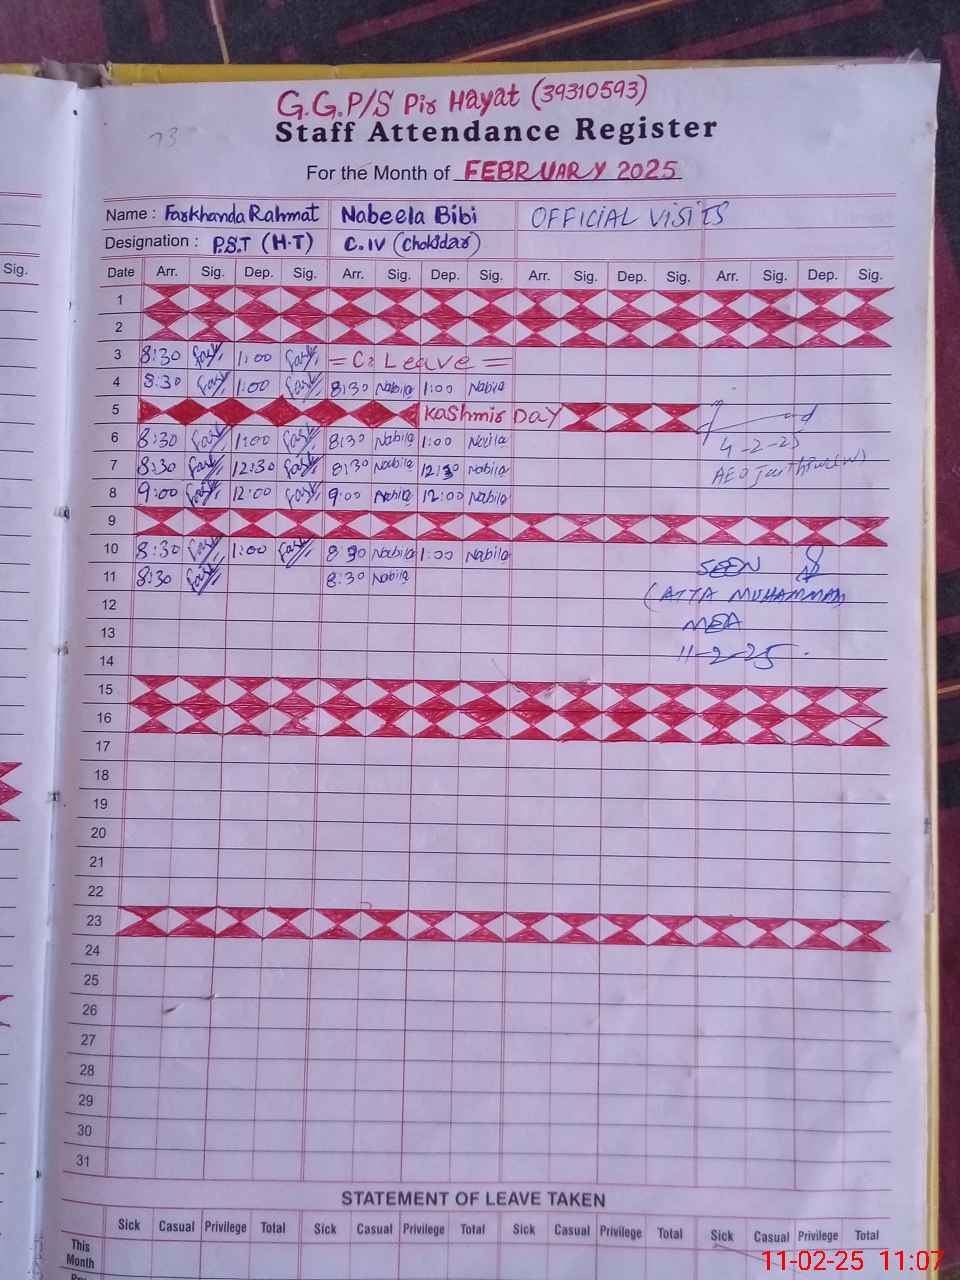 G.G.P/S Pir Hayat (39310593)
73
Staff Attendance Register
For the Month of FEBRUARY 2025
Name : Farkhanda Rahmat Nabeela Bibi OFFICIAL VISITS
Designation : P.S.T (H.T) C.IV (Chokidar)
Sig. Date Arr. Sig. Dep. Sig. Arr. Sig. Dep. Sig. Arr. Sig. Dep. Sig. Arr. Sig. Dep. Sig.
1
2
3 8:30 1:00 = C. Leave =
4 8:30 1:00 8:30 Nabila 1:00 Nabila
5 Kashmir DAY
6 8:30 1:00 8:30 Nabila 1:00 Nabila 4-2-25
7 8:30 12:30 8:30 Nabila 12:30 Nabila AEO
8 9:00 12:00 9:00 Nabila 12:00 Nabila
9
10 8:30 1:00 8:30 Nabila 1:00 Nabila SEEN
11 8:30 8:30 Nabila (ATTA MUHAMMAD
12 MEA
13 11-2-25
14
15
16
17
18
19
20
21
22
23
24
25
26
27
28
29
30
31
STATEMENT OF LEAVE TAKEN
Sick Casual Privilege Total Sick Casual Privilege Total Sick Casual Privilege Total Sick Casual Privilege Total
This
Month
11-02-25 11:07